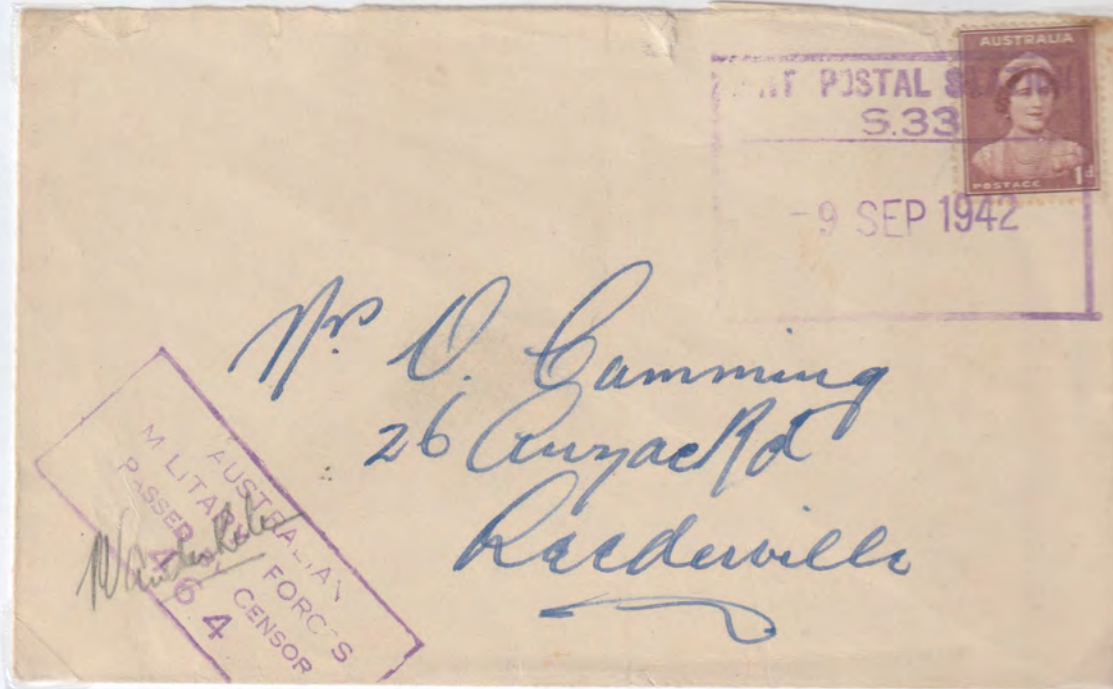 AUSTRALIA
POSTAGE 1d
POSTAL
S.33
-9 SEP 1942
Mrs O. Camming
26 Anzac Rd
Leederville
AUSTRALIAN
MILITARY FORCES
PASSED BY CENSOR
464